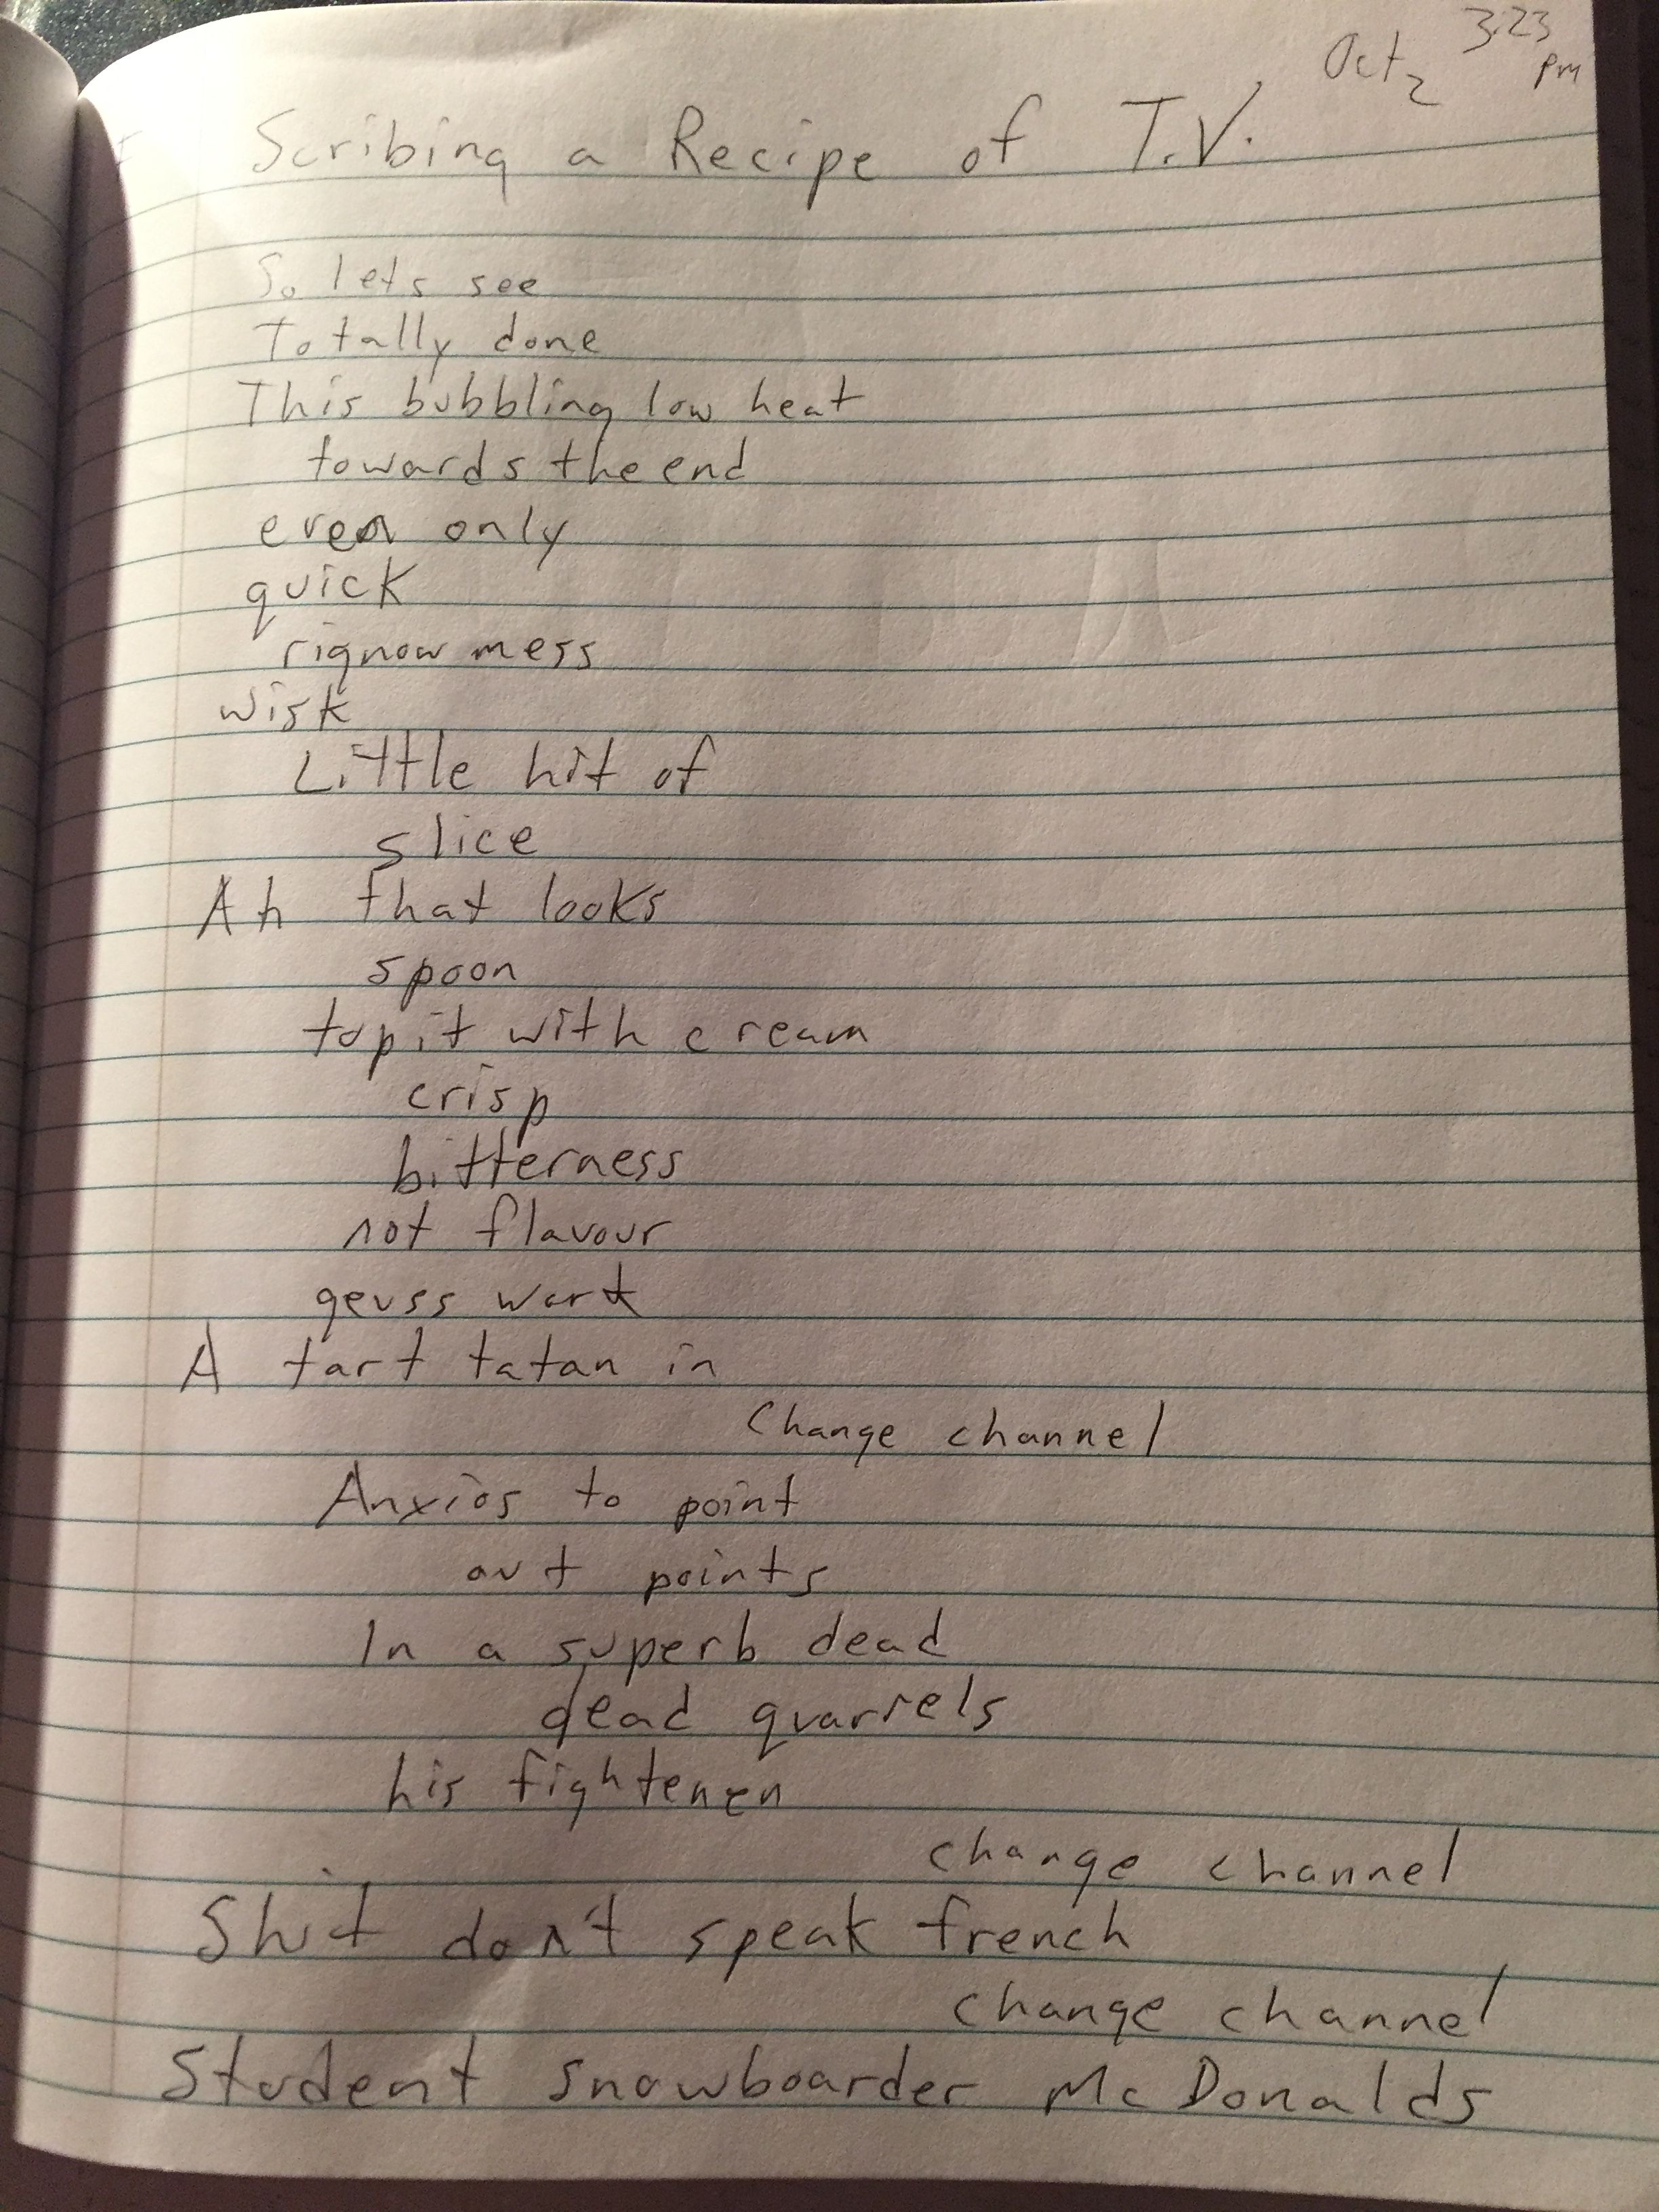 Oct 2 3:23 pm
Scribing a Recipe of T.V.
So lets see
Totally done
This bubbling low heat
towards the end
even only
quick
rignow mess
wisk
Little hit of
slice
Ah that looks
spoon
top it with cream
crisp
bitterness
not flavour
geuss work
A tart tatan in
Change channel
Anxios to point
out points
In a superb dead
dead quarrels
his fightenen
change channel
Shit don't speak french
change channel
Student snowboarder McDonalds